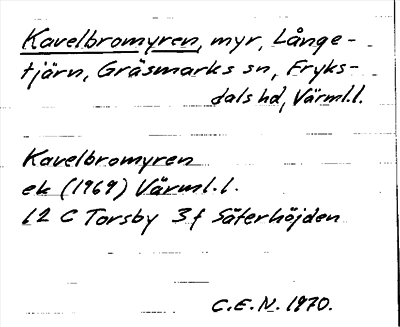 Kavelbromyren, myr, Långe-
tjärn, Gräsmarks sn, Fryks-
dals hd, Värml.l.
Kavelbromyren
ek (1969) Värml.l.
12 C Torsby 3f Säterhöjden
C.E.N. 1970.